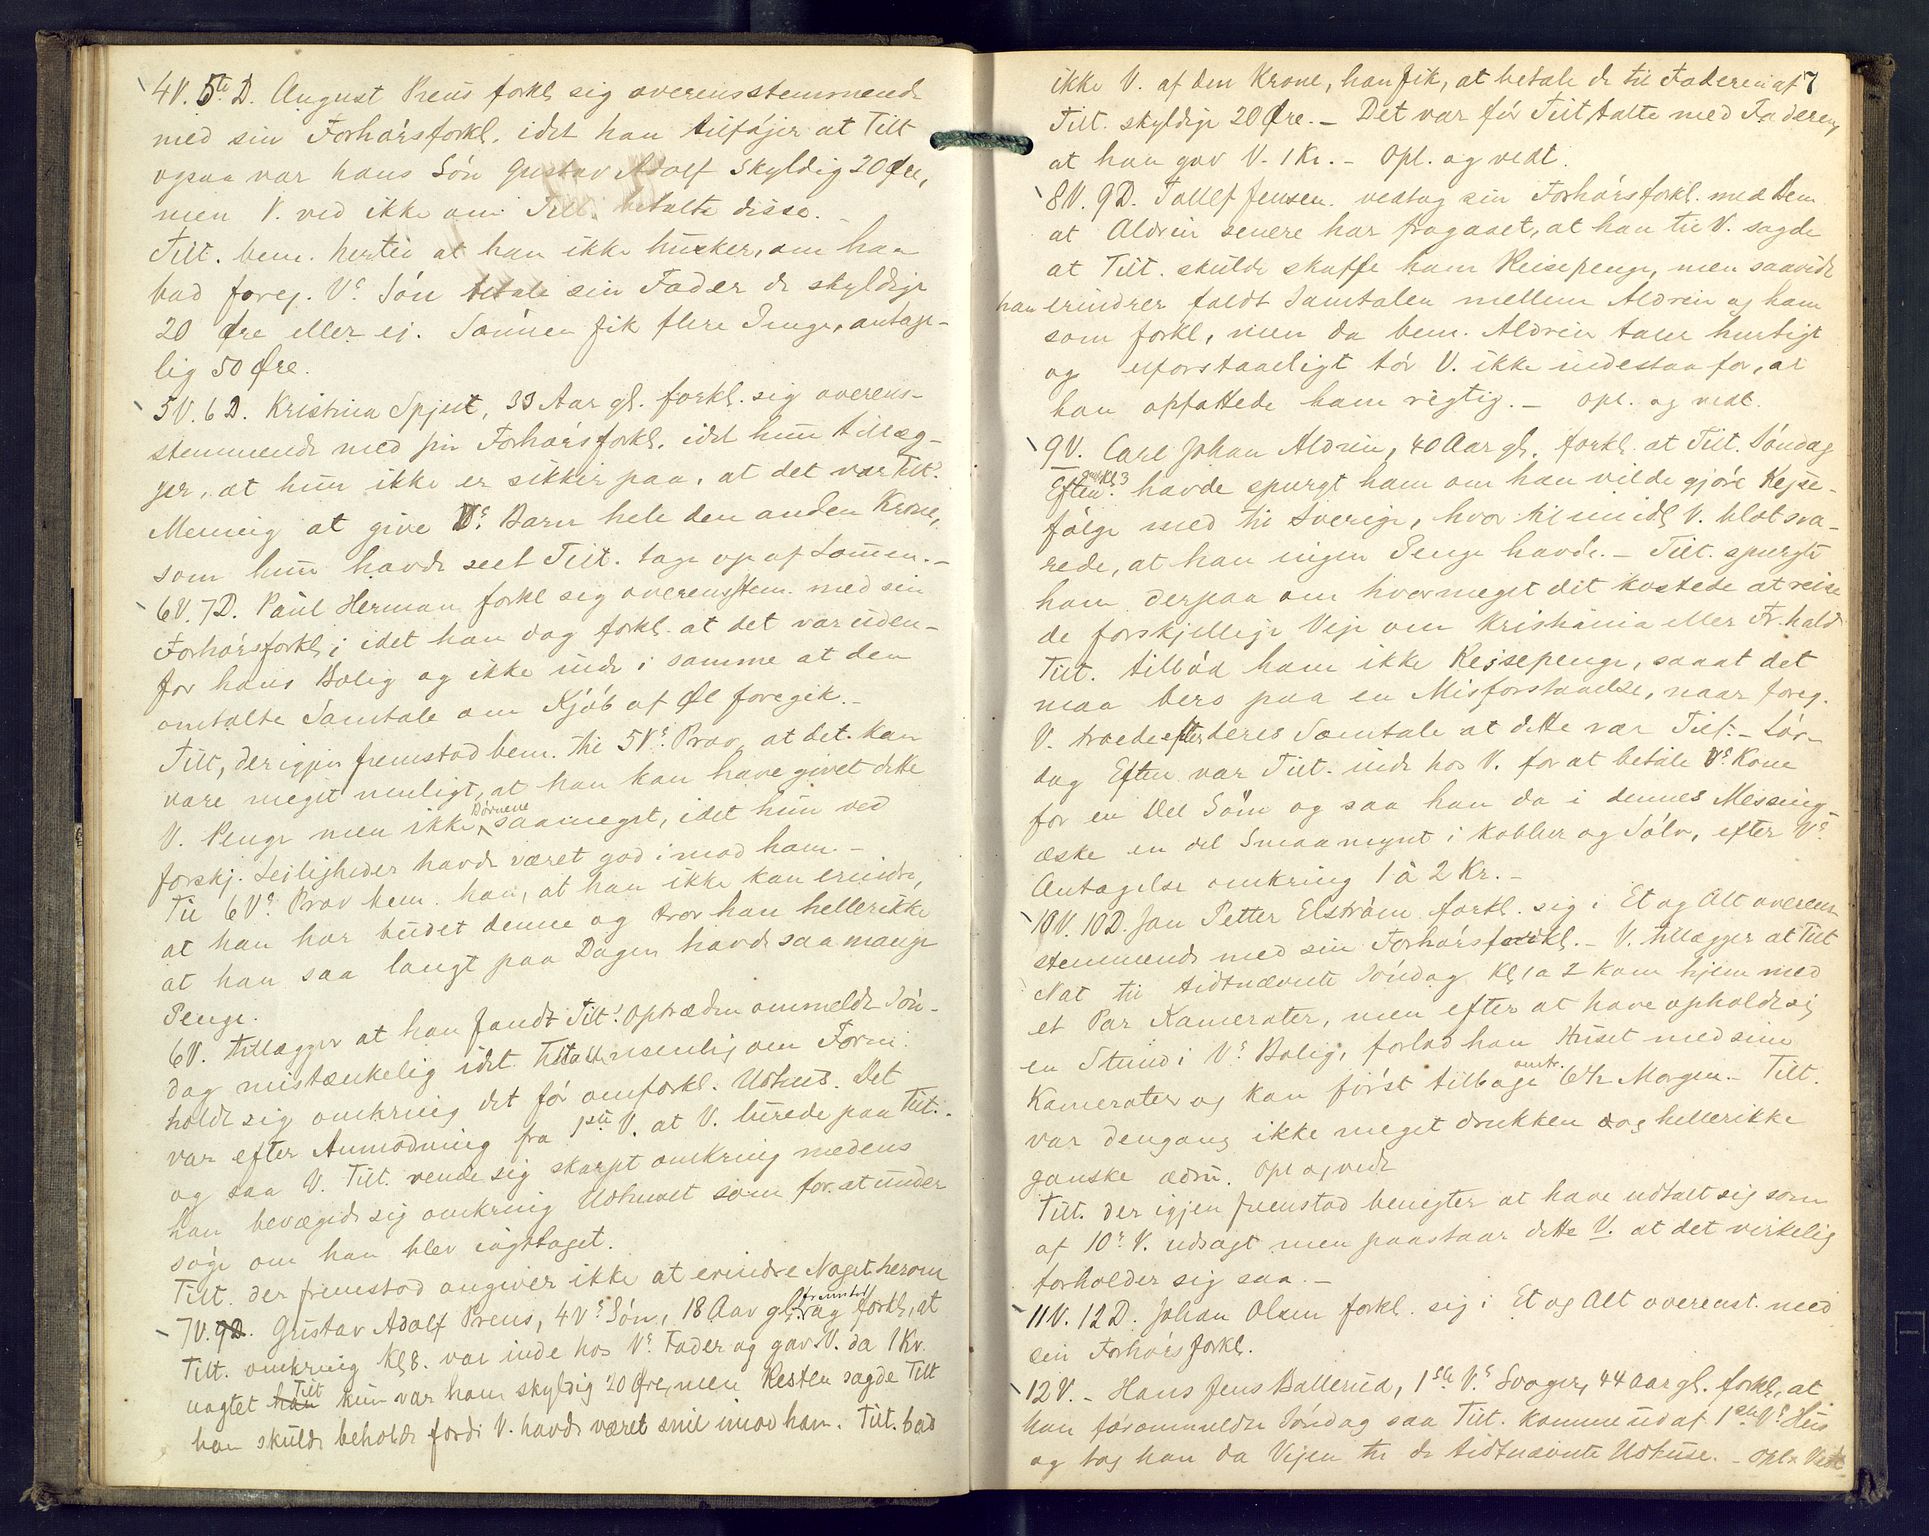 4V. 5te D. August Preus forkl. sig overensstemmende
med sin Forhørsforkl. idet han tilføjer at Tilt
ogsaa var hans Søn Gustav Adolf skyldig 20 Øre,
men V. ved ikke om Tilt. betalte disse. –
Tilt. bem. hertil at han ikke husker, om han
bad foreg. Vs Søn betale sin Fader de skyldige
20 Øre eller ej. Sønnen fik flere Penge, antage-
lig 50 Øre.
5V. 6D. Kristina Spjut, 33 Aar gl. forkl. sig overens-
stemmende med sin Forhørsforkl. idet hun tillæg-
ger, at hun ikke er sikker paa, at det var Tilts
Mening at give Vs Barn hele den anden Krone,
som hun havde seet Tilt. tage op af Lommen. –
6V. 7D. Paul Herman forkl sig overensstem. med sin
Forhørsforkl; idet han dog forkl. at det var uden-
for hans Bolig og ikke inde i samme at den
omtalte Samtale om Kjøb af Øl foregik. –
Tilt, der igjen fremstod bem. til 5Vs Prov, at det kan
være meget muligt, at han kan have givet dette
V. Penge men ikke Børnene saameget, idet hun ved
forskj. Leiligheder havde været god imod ham. –
Til 6Vs Prov bem. han, at han ikke kan erindre,
at han har budet denne og tror han hellerikke
at han saa langt paa Dagen havde saa mange
Penge.
6V. tillægger at han fandt Tilts Optræden ommeldte Søn-
dag mistænkelig idet Tilt nemlig om Form.
holdt sig omkring det før omforkl. Udhus. Det
var efter Anmodning fra 1ste V. at V. lurede paa Tilt.
og saa V. Tilt. vende sig skarpt omkring medens
han bevægede sig omkring Udhuset som for at under
søge om han blev iagttaget.
Tilt. der fremstod angiver ikke at erindre Noget herom
7V. 9D. Gustav Adolf Preus, 4Vs Søn, 18 Aar gl. fremstod og forkl, at
Tilt. omkring Kl 8. var inde hos Vs Fader og gav V. da 1 Kr.
uagtet han Tilt kun var ham skyldig 20 Øre, men Resten sagde Tilt
han skulde beholde fordi V. havde været snil imod ham. Tilt. bad
ikke V. af den Krone, han fik, at betale de til Faderen af 7
Tilt. skyldige 20 Øre. – Det var før Tilt talte med Faderen,
at han gav V. 1 Kr. – Opl. og vedt.
8V. 9D. Tollef Jensen vedtog sin Forhørsforkl. med Bem
at Aldrin senere har fragaaet, at han til V. sagde
at Tilt. skulde skaffe ham Reisepenge, men saavidt
han erindrer faldt Samtalen mellem Aldrin og ham
som forkl, men da bem. Aldrin taler hurtigt
og uforstaaeligt tør V. ikke indestaa for, at
han opfattede ham rigtig. – Opl. og vedt.
9V. Carl Johan Aldrin, 40 Aar gl. forkl. at Tilt. Søndag
Efterm. Kl 3 havde spurgt ham om han vilde gjøre Rejse-
følge med til Sverige, hvortil imidl V. blot sva-
rede, at han ingen Penge havde. – Tilt. spurgte
ham derpaa om hvormeget det kostede at reise
de forskjellige Veje om Kristiania eller Fr.hald
Tilt. tilbød ham ikke Rejsepenge, saaat det
maa bero paa en Misforstaaelse, naar foreg.
V. troede efter deres Samtale at dette var Tilf. – Lør-
dag Eften var Tilt. inde hos V. for at betale Vs Kone
for en Del Søm og saa han da i dennes Messing-
æske en del Smaamynt i Kobber og Sølv, efter Vs
Antagelse omkring 1 à 2 Kr. –
10V. 10D. Jan Petter Elstrøm forkl. sig i Et og Alt overens-
stemmende med sin Forhørsforkl. – V. tillægger at Tilt
Nat til tidtnævnte Søndag Kl, 1 a 2 kom hjem med
et Par Kamerater, men efter at have opholdt sig
en Stund i Vs Bolig, forlod han Huset med sine
Kamerater og kom først tilbage omtr. 6½ Morgen. – Tilt.
var dengang ikke meget drukken og hellerikke
ganske ædru. Opl og vedt
Tilt. der igjen fremstod benegter at have udtalt sig som
af 10s V. udsagt men paastaar dette V. at det virkelig
forholder sig saa. –
11V. 12D. Johan Olsen forkl. sig i Et og Alt overenst. med
sin Forhørsforkl.
12V. – Hans Jens Ballerud, 1ste Vs Svoger, 44 Aar gl. forkl, at
han førommeldte Søndag saa Tilt. komme ud af 1ste Vs Hus
og tog han da Vejen til de tidtnævnte Udhuse. – Opl & Vedt